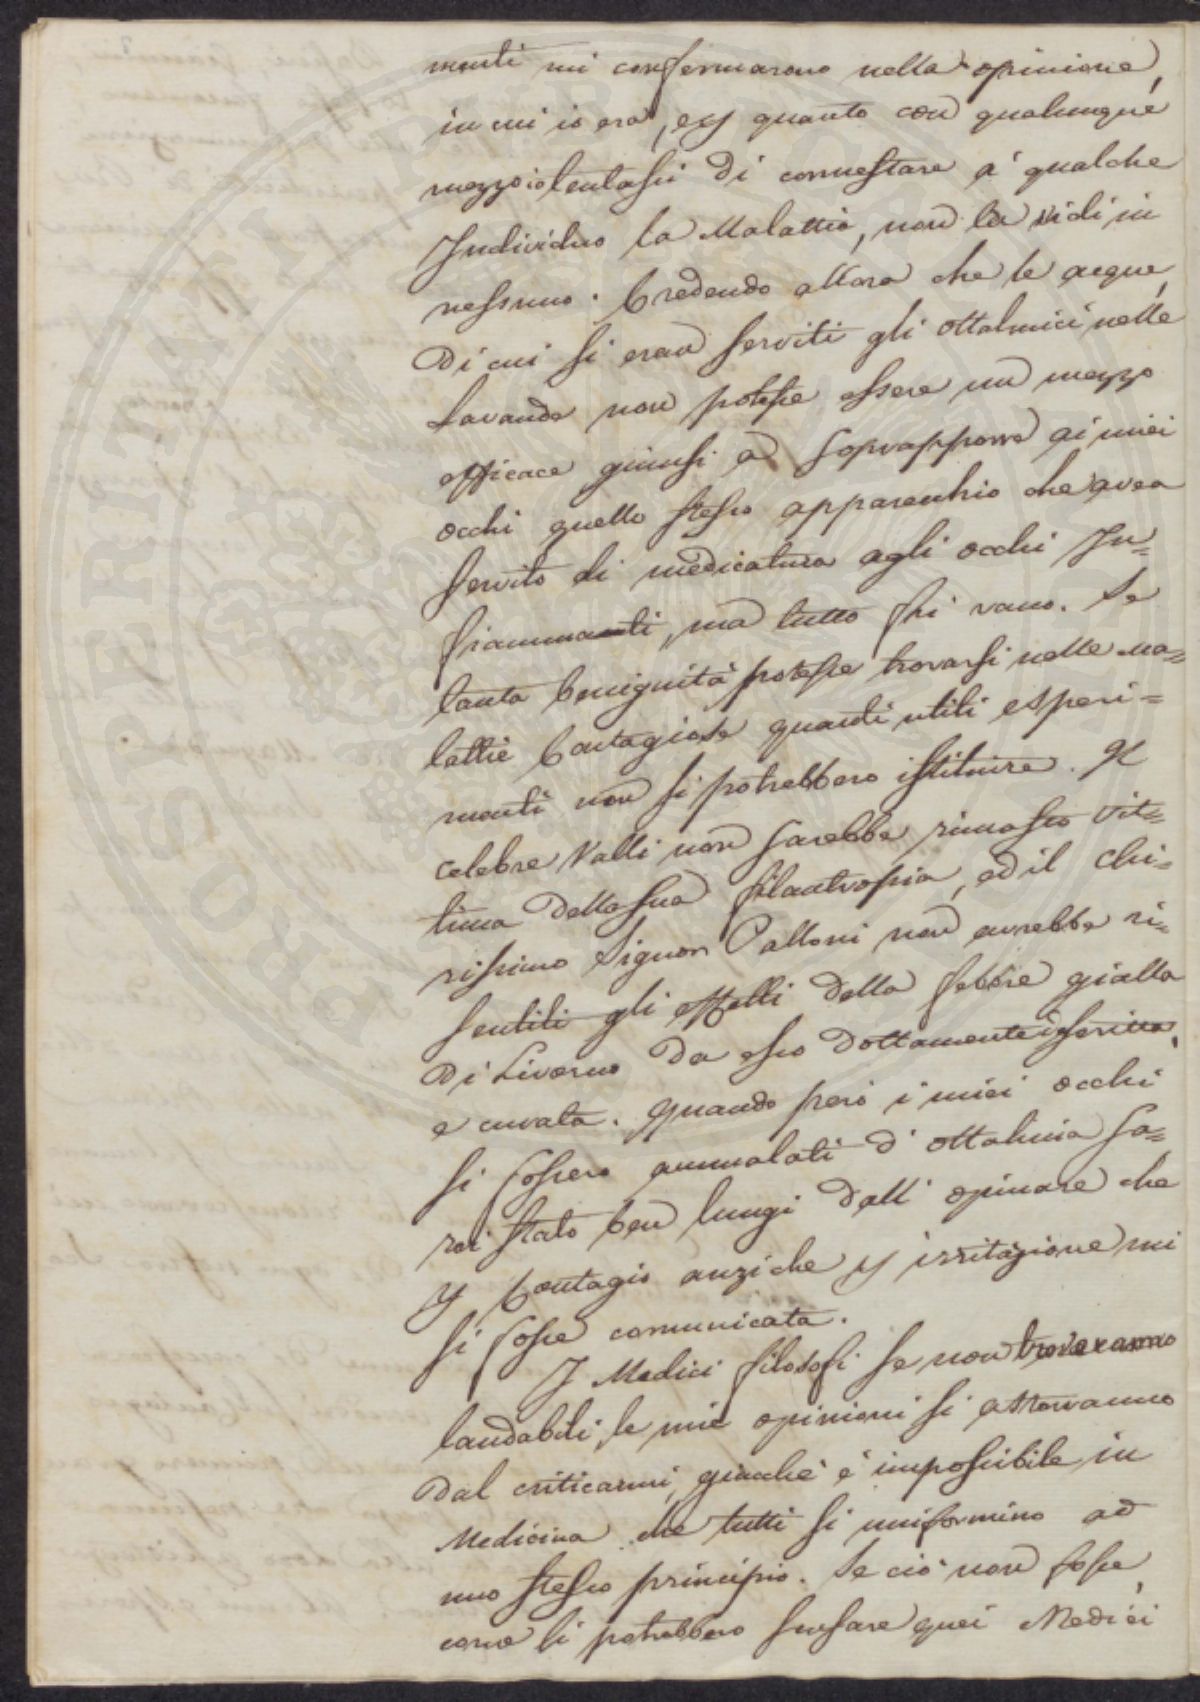 menti mi confermarono nella opinione,
in cui io era, e p quanto con qualunque
mezzo io tentassi di connestare a' qualche
Individuo la Malattia, non la vidi in
nessuno. Credendo allora che le acque,
di cui si eran serviti gli ottalmici nelle
lavande non potesse essere un mezzo
efficace giunsi a soprapporre ai miei
occhi quello stesso apparecchio che avea
servito di medicatura agli occhi In=
fiammanti, ma tutto fu vano. Se
tanta benignità potesse trovarsi nelle ma=
lattie Contagiose quanti utili esperi=
menti non si potrebbero istituire. Il
celebre Valli non sarebbe rimasto vit=
tima della sua filantropia, ed il chi=
rissimo Signor Palloni non avrebbe ri=
sentiti gli effetti della febbre gialla
di Livorno da esso dottamente descritta,
e curata. Quando però i miei occhi
si fossero ammalati d' ottalmia sa=
rei stato ben lungi dall' opinare che
p Contagio anziche p irritazione mi
si fosse comunicata.
I Medici filosofi se non troveranno
laudabili le mie opinioni si asterranno
dal criticarmi, giacchè è impossibile in
Medicina che tutti si uniformino ad
uno stesso principio. Se ciò non fosse,
come si potrebbero scusare quei Medici
PROSPERITATI PUBLICAE